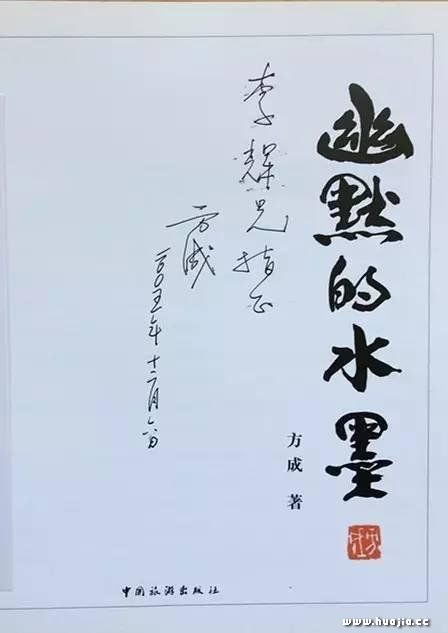 幽默的水墨
方成 著
李辉兄指正
方成
二〇〇五年十二月六日
方成
中国旅游出版社
www.huajia.cc